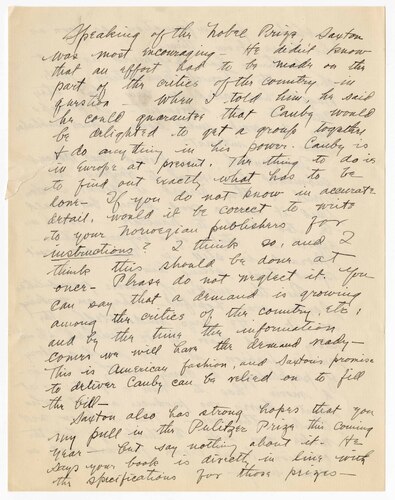 Speaking of the Nobel Prize, Saxton
was most encouraging - He didn't know
that an effort had to be made on the
part of the critics of the country in
question - When I told him, he said
he could guarantee that Canby would
be delighted to get a group together
& do anything in his power. Canby is
in Europe at present. The thing to do is
to find out exactly what has to be
done - If you do not know in accurate
detail, would it be correct to write
to your Norwegian publishers for
instructions? I think so, and I
think this should be done at
once - Please do not neglect it. You
can say that a demand is growing
among the critics of the country, etc.,
and by the time the information
comes we will have the demand ready -
This is American fashion, and Saxton's promise
to deliver Canby can be relied on to fill
the bill -
Saxton also has strong hopes that you
may pull in the Pulitzer Prize this coming
year - but say nothing about it. He
says your book is directly in line with
the specifications for those prizes -